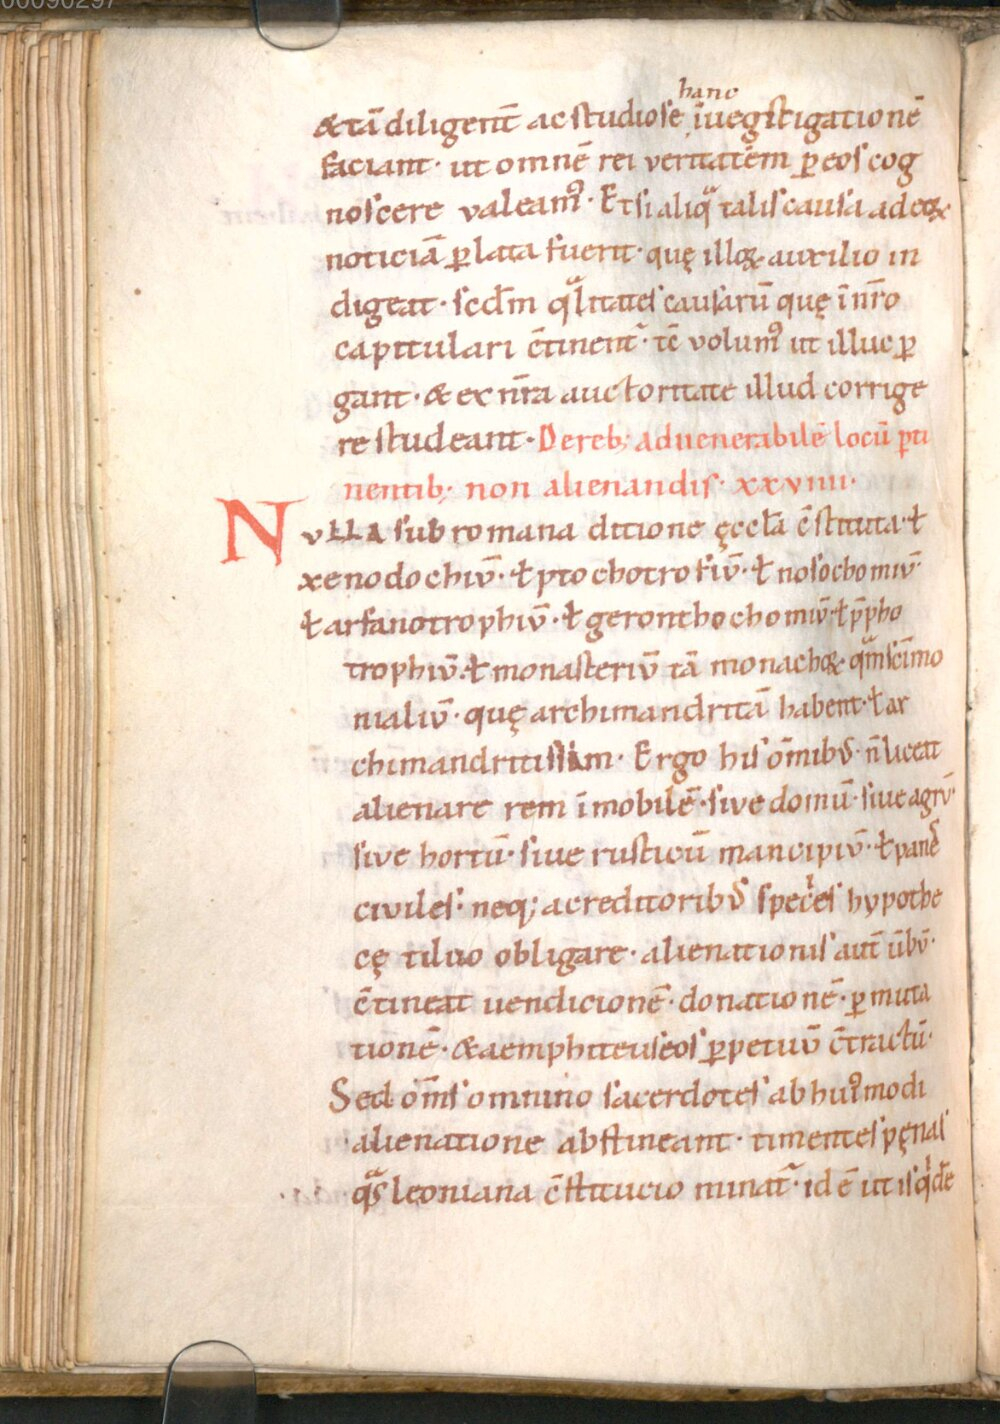 00090297
hanc
&tā diligent̄ ac studiose īuegstigationē
faciant· ut omnē rei veritatēm ꝑ eos cog
noscere valeamꝰ· Etsi aliqͣ talis causa ad eoꝝ
noticiā ꝑlata fuerit· quę illoꝝ auxilio in
digeat· scd̄m qͣlitates causarū quę ī nr̄o
capitulari c̄tinent᷑· tc̄ volumꝰ ut illuc ꝑ
gant· & ex nr̄a auctoritate illud corrige
re studeant· De reb; ad uenerabilē locū ꝑti
nentib; non alienandis· xxviiii·
NVLLA sub romana ditione ęccl̄a c̄stituta· ł
xenodochiū· ł ptochotrofiū· ł nosochomiū·
ł arfanotrophiū· ł geronthochomiū· ł p̄pho
trophiū· ł monasteriū tā monachoꝝ qͣm sc̄imo
nialiū· quę archimandritā habent· ł ar
chimandritissam· Ergo his om̄ibꝰ n̄ liceat
alienare rem īmobilē· sive domū· siue agrū·
sive hortū· siue rusticū mancipiū· ł panes
civiles· neq; a creditoribꝰ spec̄es hypothe
cę tiluo obligare· alienationis aut̄ ūbū·
c̄tineat uendicionē· donationē· ꝑmuta
tionē· & a emphiteuseos ꝑpetuū c̄tractū·
Sed om̄s omnino sacerdotes ab huiꝰmodi
alienatione abstineant· timentes pęnas
qͣs leoniana c̄stitucio minat᷑· id ē ut is qͥdē